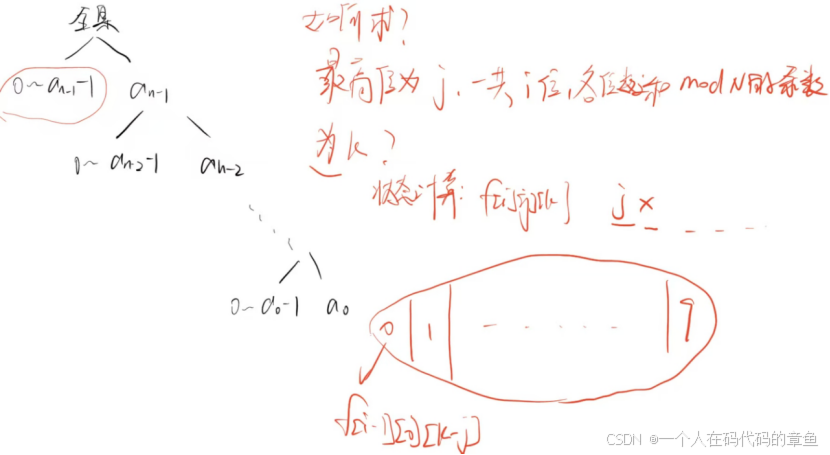 全集
0~aₙ₋₁-1 aₙ₋₁
0~aₙ₋₂-1 aₙ₋₂
0~a₀-1 a₀
如何求?
最高位为j,一共i位,各位数之和 mod N的余数
为k?
状态计算: f[i][j][k] j x
0 1 - . . . . . 9
f[i-1][0][k-j]
CSDN @一个人在码代码的章鱼